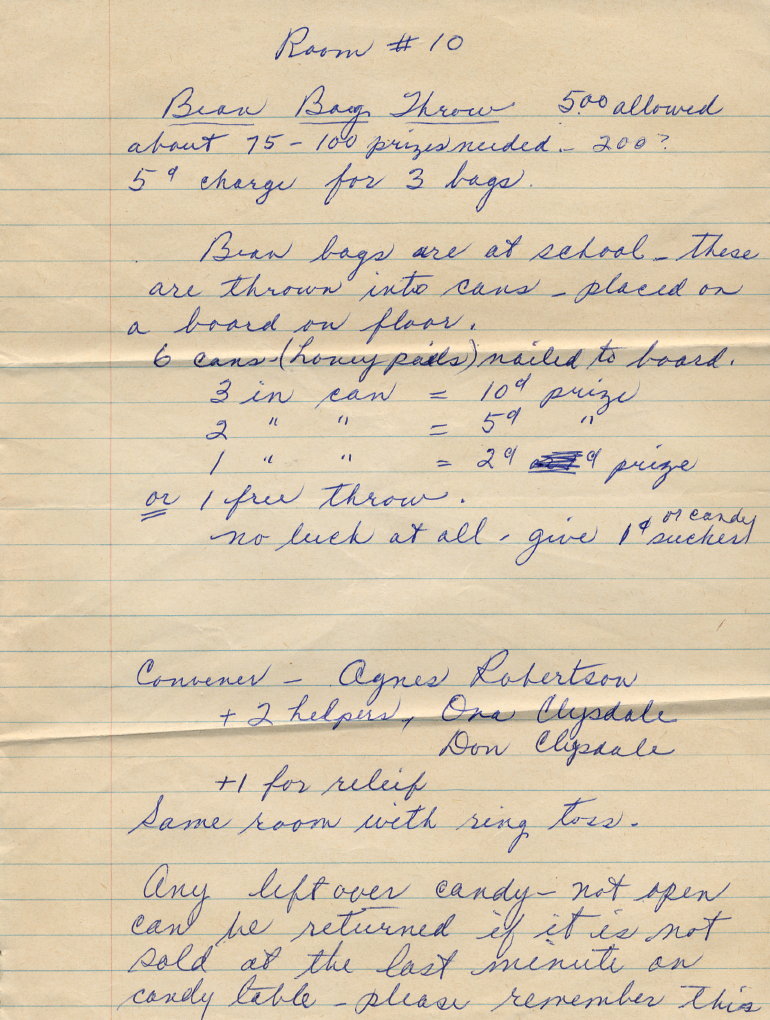 Room # 10
Bean Bag Throw 5.00 allowed
about 75 - 100 prizes needed - 200?
5¢ charge for 3 bags.
Bean bags are at school - these
are thrown into cans - placed on
a board on floor.
6 cans (honey pails) nailed to board.
3 in can = 10¢ prize
2 " " = 5¢ "
1 " " = 2¢ ¢ prize
or 1 free throw.
no luck at all - give 1¢ or candy sucker
Convener - Agnes Robertson
+ 2 helpers, Ona Clysdale
Don Clysdale
+1 for releif
Same room with ring toss.
Any left over candy - not open
can be returned if it is not
sold at the last minute on
candy table - please remember this